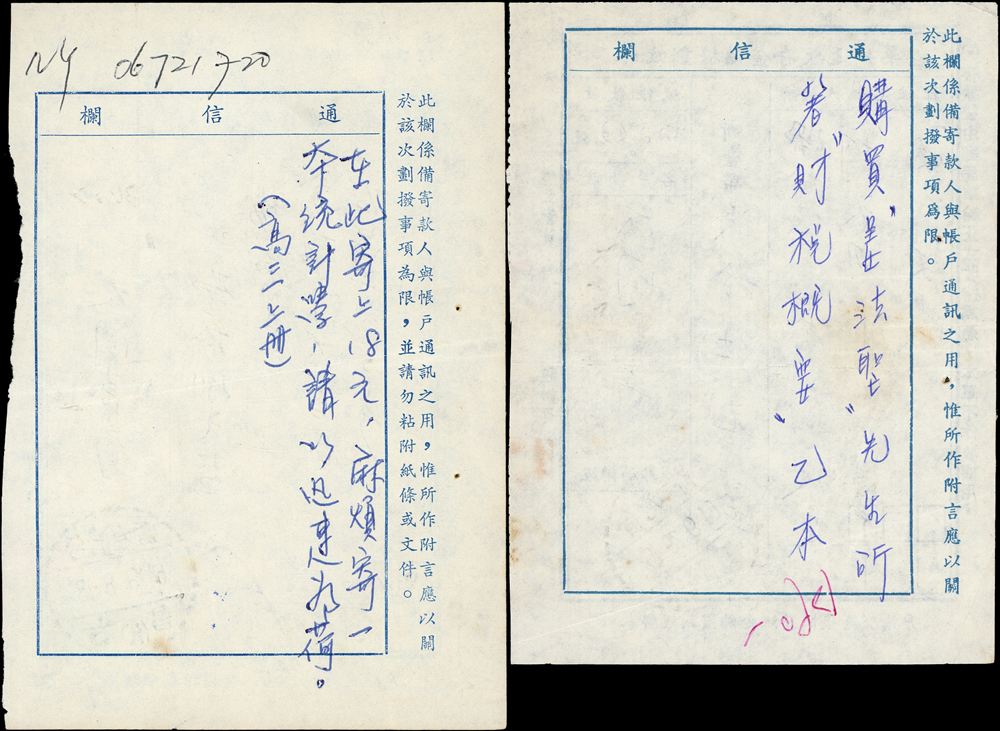 此欄係備寄款人與帳戶通訊之用，惟所作附言應以關
於該次劃撥事項為限，並請勿粘附紙條或文件。
通信欄
在此寄上18元，麻煩寄一
本統計學，請以迅速為荷。
（高三上冊）
此欄係備寄款人與帳戶通訊之用，惟所作附言應以關
於該次劃撥事項爲限。
通信欄
購買"法聖"先生所
著"財稅概要"乙本